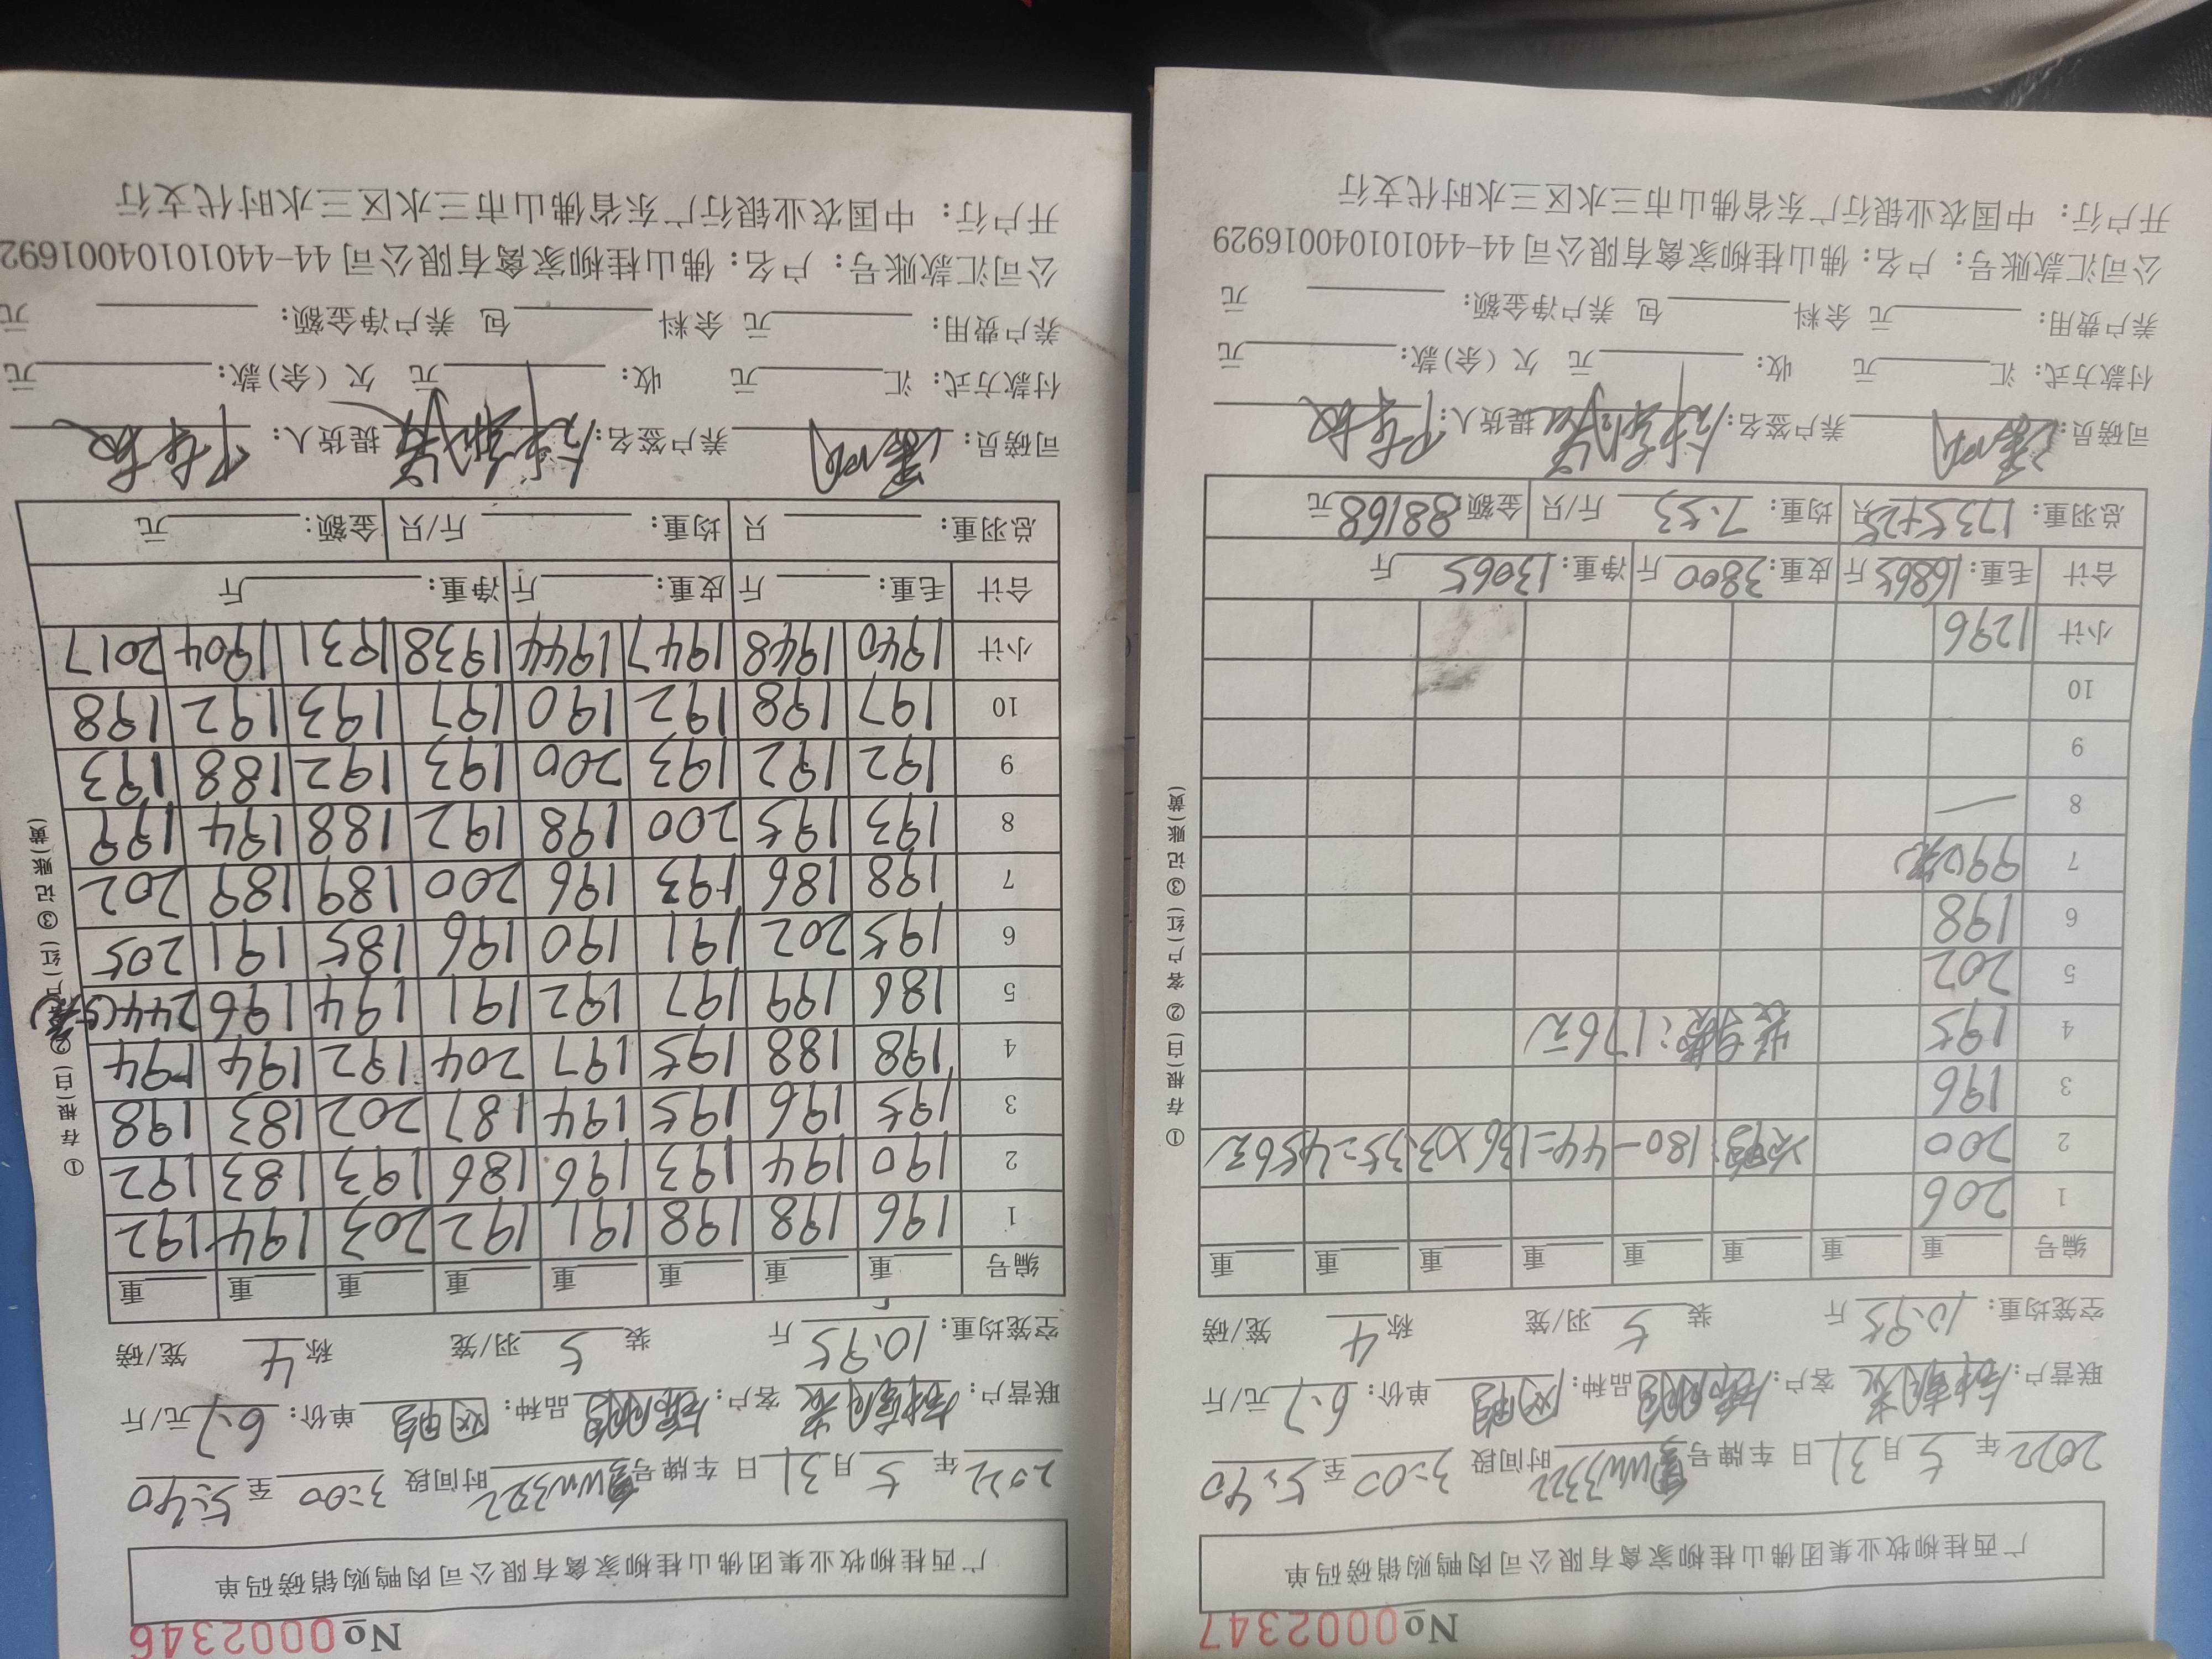 No 0002347
广西桂柳牧业集团佛山桂柳家禽有限公司肉鸭购销磅码单
2022年5月31日 车牌号WW3322 时间段3:00至5:40
联营户: 客户: 品种: 单价:6.7元/斤
空笼均重:10.95斤 装5羽/笼 称4笼/磅
编号 重 重 重 重 重 重 重 重
1 206
2 200 次鸭:180-44=136×3.35=456元
3 196
4 195 装鸭费:176元
5 202
6 198
7 99(2笼)
8
9
10
小计 1296
合计 毛重:16865斤 皮重:3800斤 净重:13065斤
总羽重:1735+25只 均重:7.53斤/只 金额88168元
司磅员: 养户签名: 提货人:
付款方式:汇 元 收: 元 欠(余)款: 元
养户费用: 元 余料 包 养户净金额: 元
公司汇款账号:户名:佛山桂柳家禽有限公司 44-440101040016929
开户行:中国农业银行广东省佛山市三水区三水时代支行
①存根(白)②客户(红)③记账(黄)
No 0002346
广西桂柳牧业集团佛山桂柳家禽有限公司肉鸭购销磅码单
2022年5月31日 车牌号WW3322 时间段3:00至5:40
联营户: 客户: 品种: 单价:6.7元/斤
空笼均重:10.95斤 装5羽/笼 称4笼/磅
编号 重 重 重 重 重 重 重 重
1 196 198 198 191 192 203 194 192
2 190 194 193 196 186 193 183 192
3 195 196 195 194 187 202 183 198
4 198 188 195 197 204 192 194 194
5 186 199 197 192 191 194 196 244(5笼)
6 195 202 191 190 196 185 191 205
7 198 186 193 196 200 189 189 202
8 193 195 200 198 192 188 194 199
9 192 192 193 200 193 192 188 193
10 197 198 192 190 197 193 192 198
小计 1940 1948 1947 1944 1938 1931 1904 2017
合计 毛重: 斤 皮重: 斤 净重: 斤
总羽重: 只 均重: 斤/只 金额: 元
司磅员: 养户签名: 提货人:
付款方式:汇 元 收: 元 欠(余)款: 元
养户费用: 元 余料 包 养户净金额: 元
公司汇款账号:户名:佛山桂柳家禽有限公司 44-44010104001692
开户行:中国农业银行广东省佛山市三水区三水时代支行
①存根(白)② 户(红)③记账(黄)